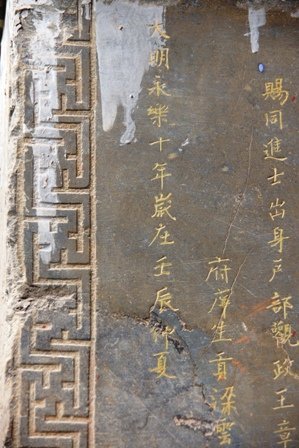 賜同進士出身戶部觀政王
府庠生貢梁雲
大明永樂十年歲在壬辰仲夏